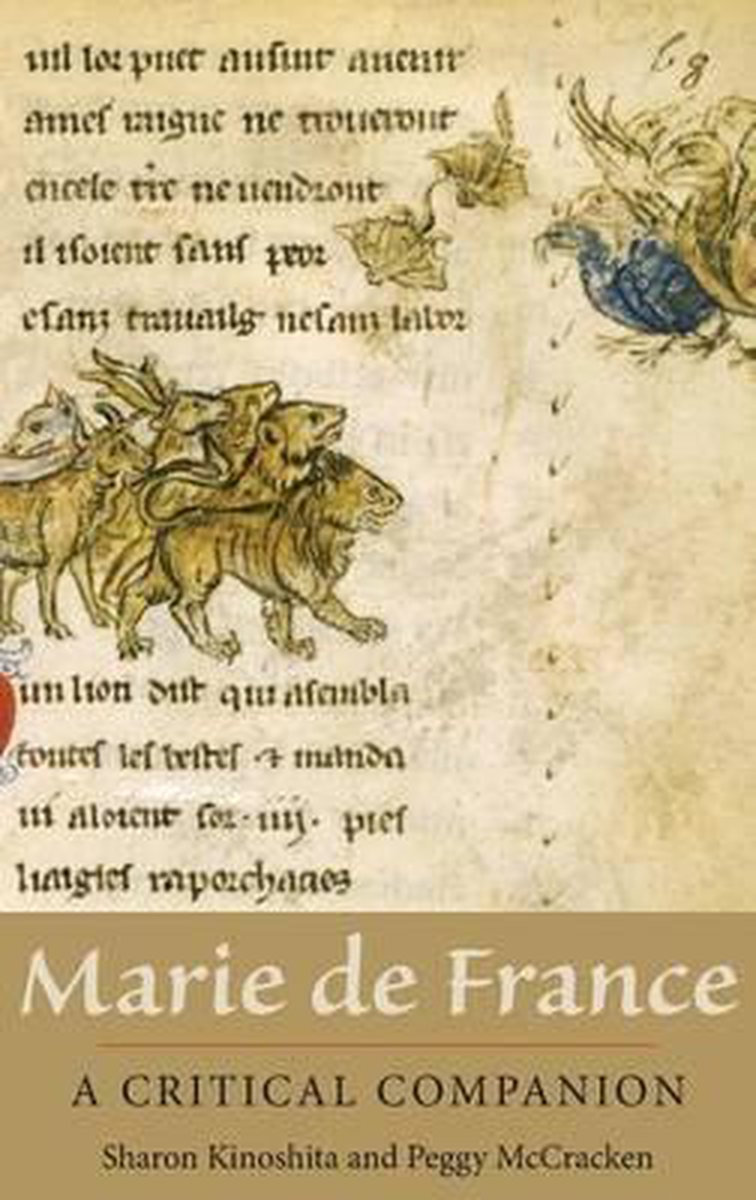 uil lor puet ausint auenir
ames uuigne ne troueront
encele ne uendront
il isoient sanz peor
esanz trauailg nesanz labor
68
un lion dist qui asembla
toutes les bestes ⁊ manda
ui aloient sor .iiij. piez
liaigles
Marie de France
A CRITICAL COMPANION
Sharon Kinoshita and Peggy McCracken